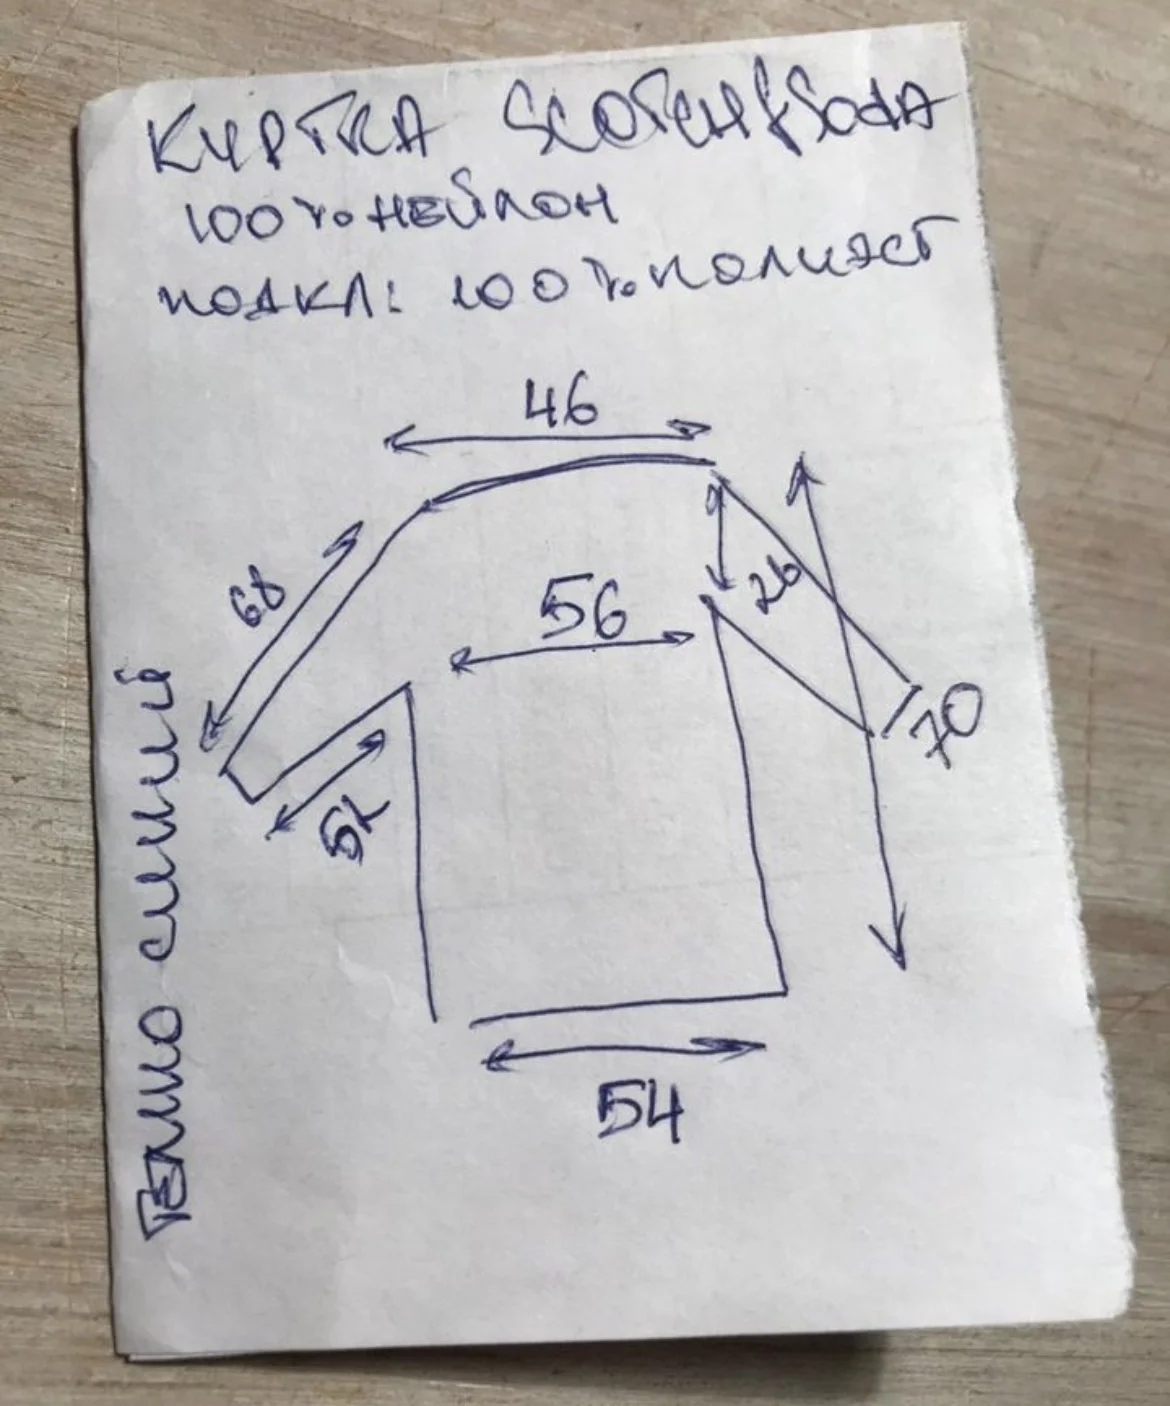 КУРТКА SCOTCH&SODA
100% НЕЙЛОН
ПОДКЛ: 100% ПОЛИЭСТ
46
68
26
56
70
52
54
ТЕМНО СИНИЙ